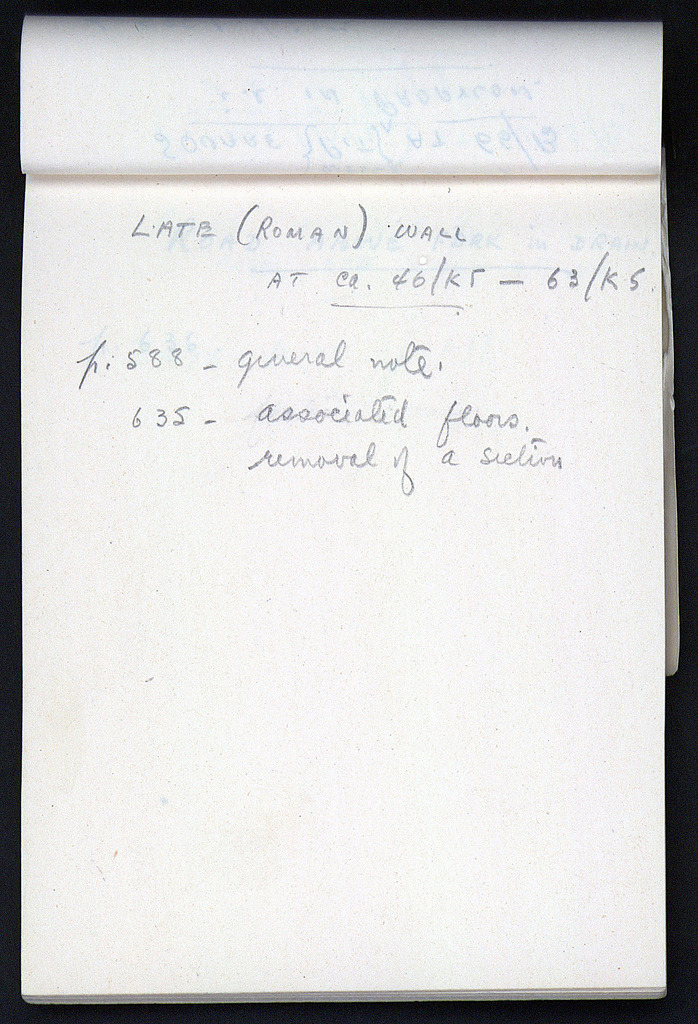 LATE (ROMAN) WALL
AT ca. 46/KΓ — 63/K5.
p. 588 - general note.
635 - associated floors.
removal of a section